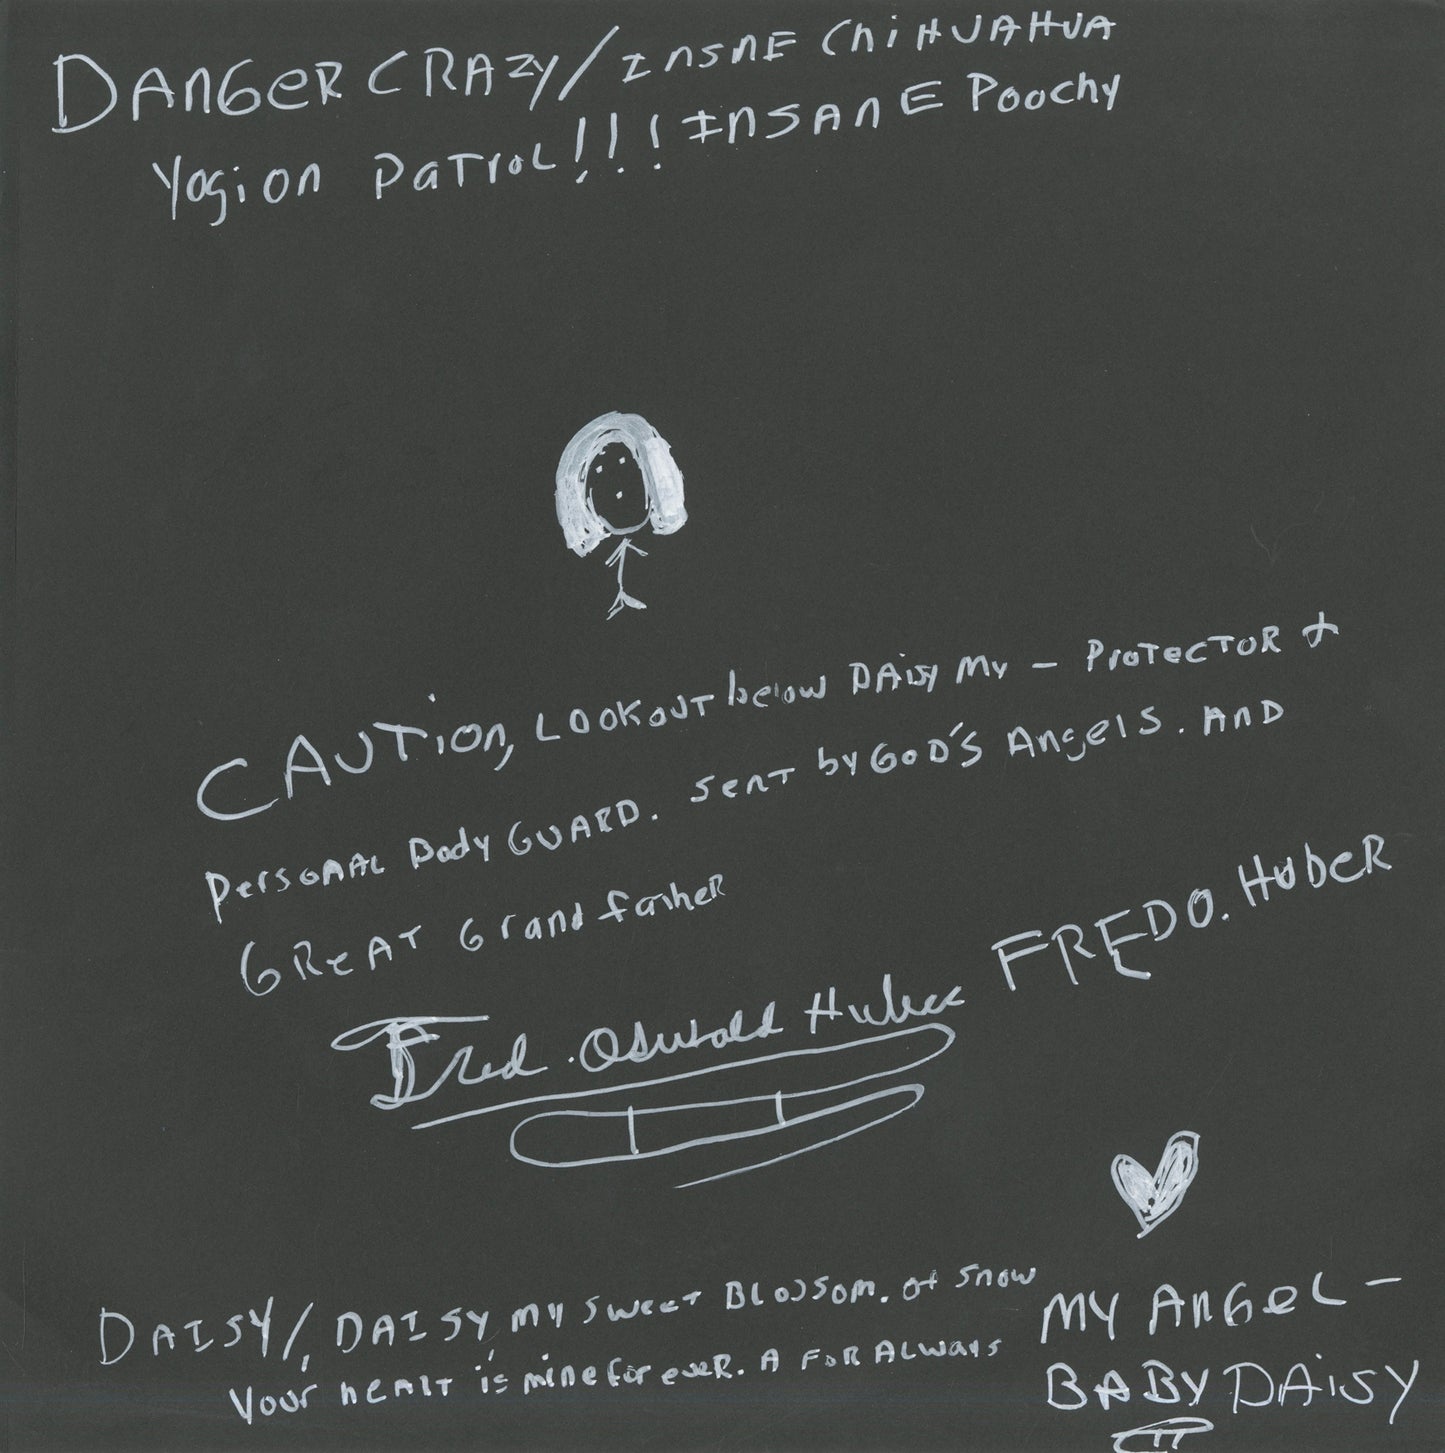 DANGER CRAZY/INSNE ChiHUAHUA
Yogi on PATROL!!! INSANE Poochy
CAUTion, LOOKOUT below DAisy My - PROTECTOR &
PersONAL Body GUARD. Sent by GOD'S Angels. AND
GREAT Grand father
FRED O. HubeR
Fred. Oswald Huber
DAISY/, DAISY, My sweet BLOSSOM. of SNOW
Your heart is mine for eveR. A FOR ALWAYS
MY ANGEL -
BABY DAiSY